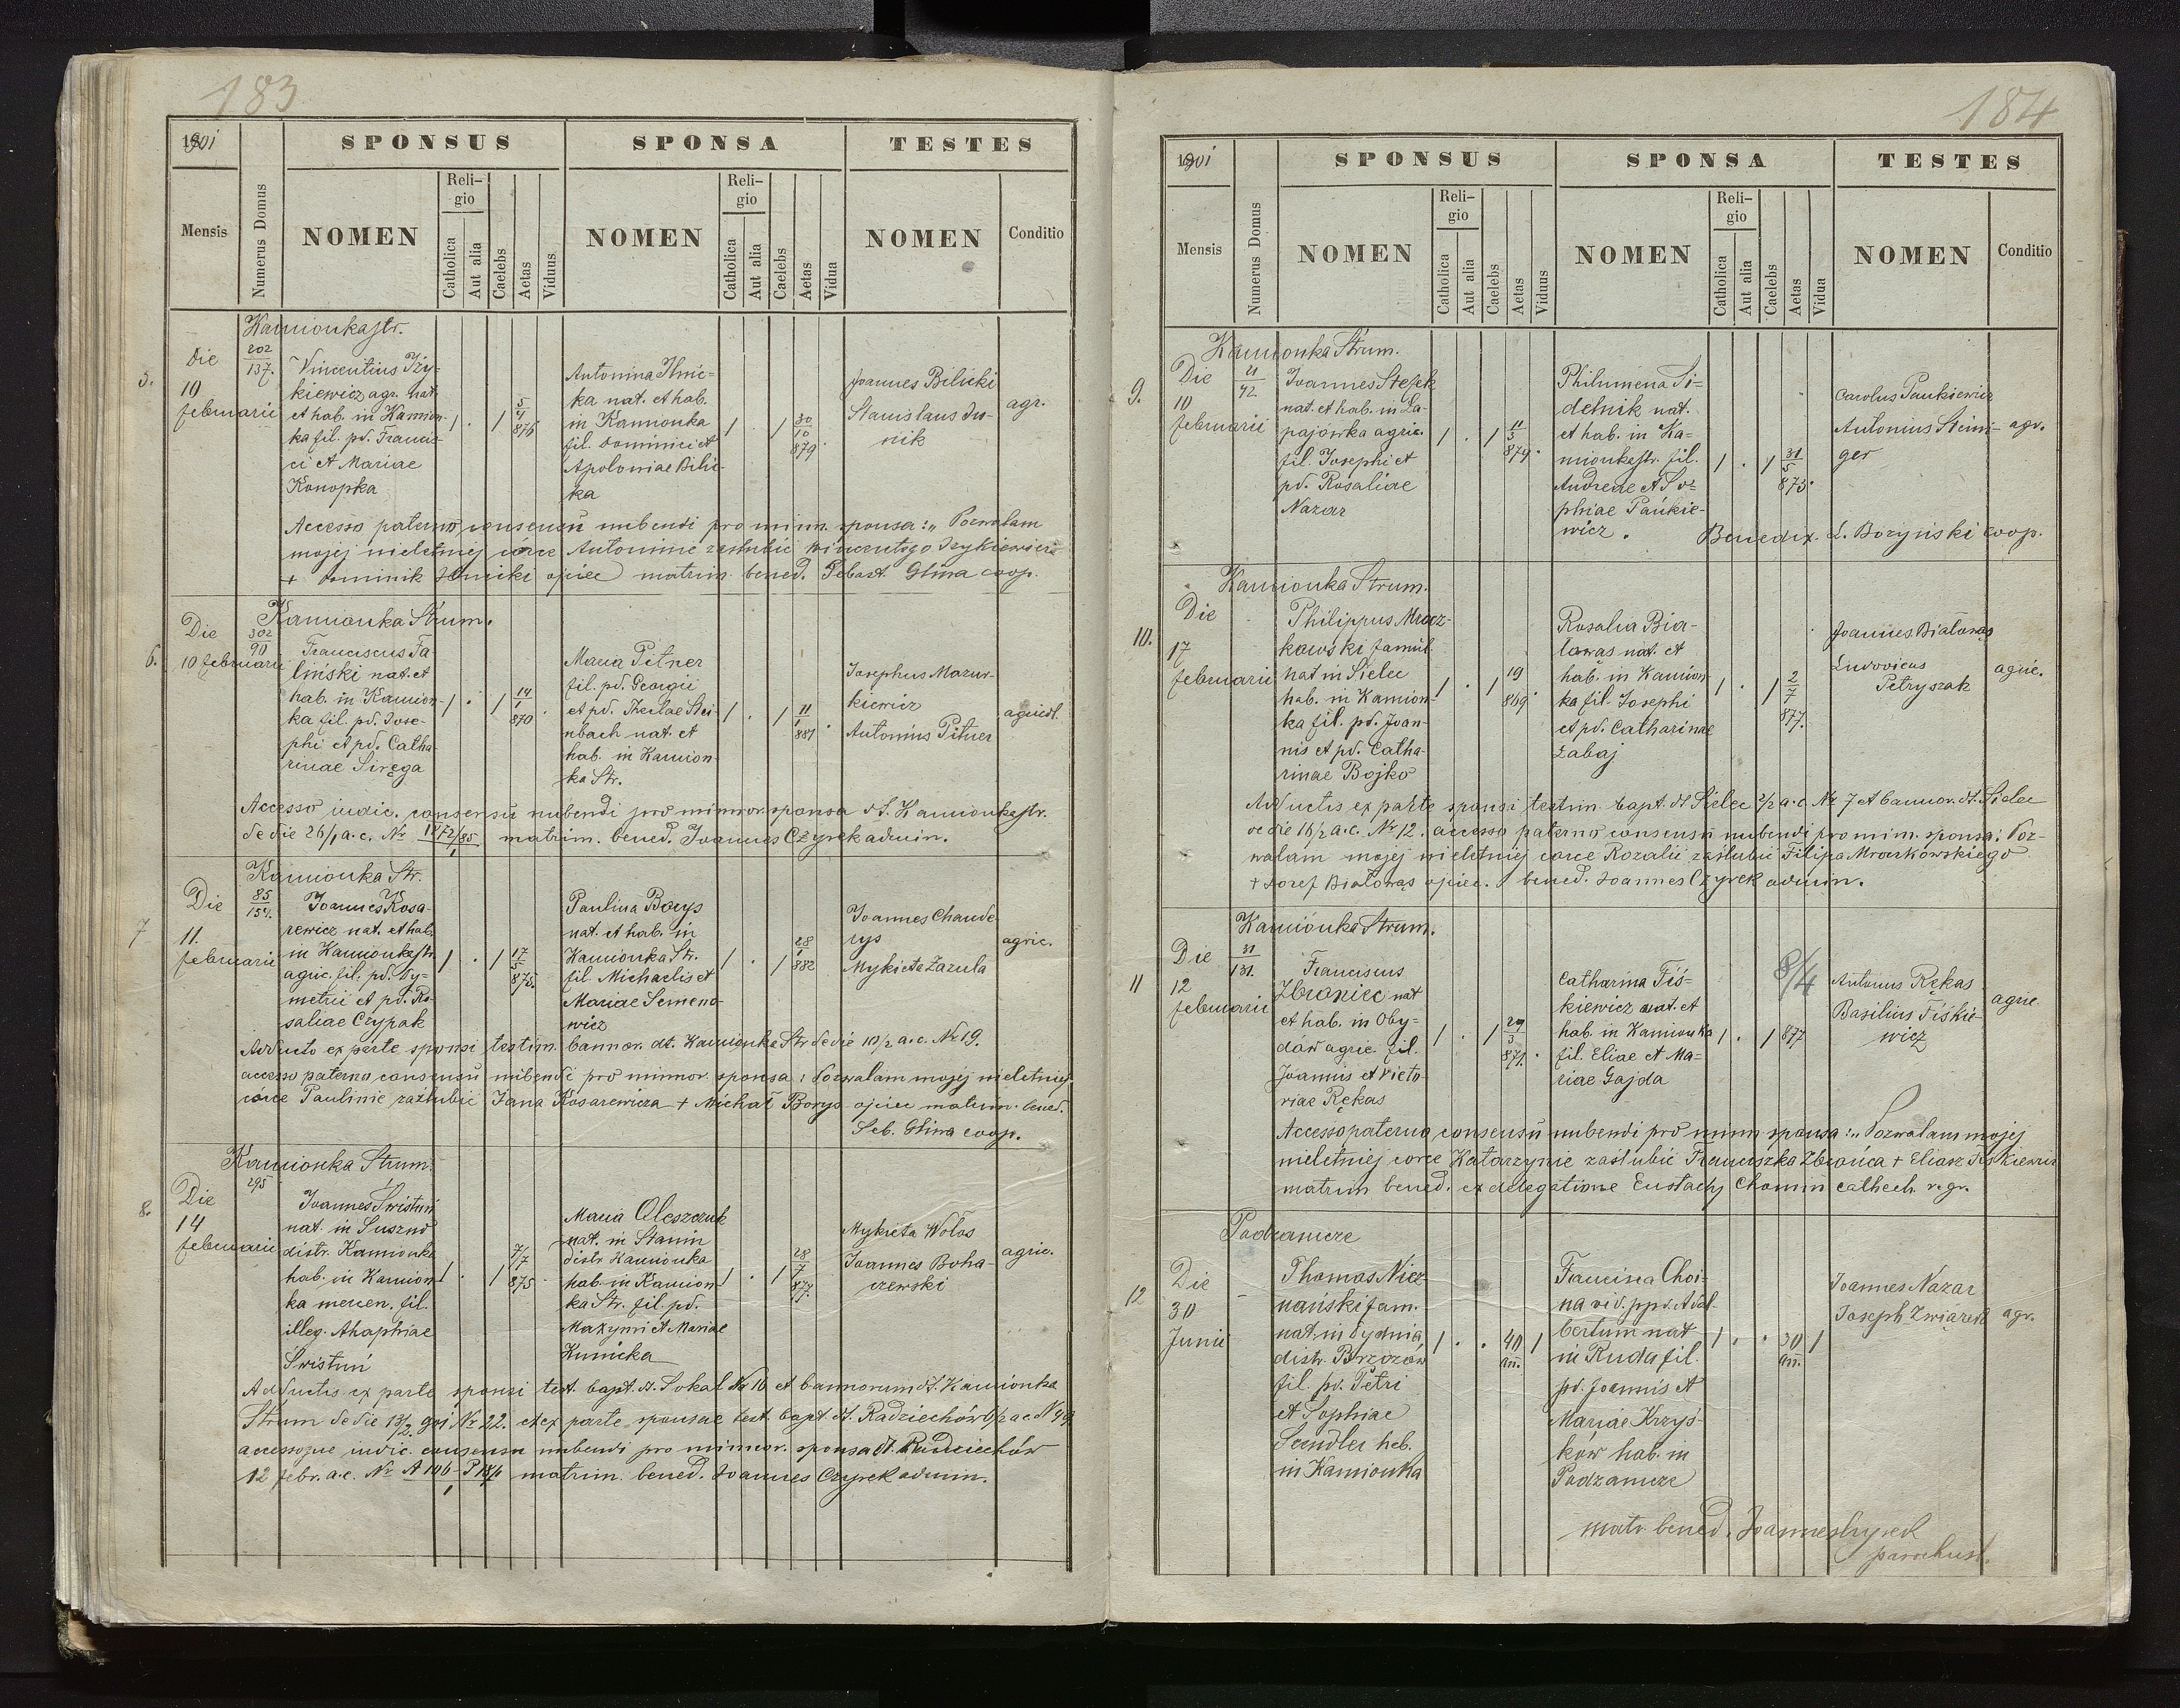 183
1901
SPONSUS
SPONSA
TESTES
Mensis
Numerus Domus
NOMEN
Religio
Catholica
Aut alia
Caelebs
Aetas
Viduus
NOMEN
Religio
Catholica
Aut alia
Caelebs
Aetas
Vidua
NOMEN
Conditio
Kamionka str.
5.
Die
10
februarii
202
137.
Vincentius Izy-
kiewicz agr. nat.
et hab. in Kamion-
ka fil. pd. Francis-
ci et Mariae
Konopka
1 . 1
5
4
876
Antonina Ilnic-
ka nat. et hab.
in Kamionka
fil. Dominici et
Apoloniae Bilic-
ka
1 . 1
30
10
879
Joannes Bilicki
Stanislaus Du-
nik
agr.
Accesso paterno consensu nubendi pro minn. sponsa: „Pozwalam
mojej nieletniej córce Antoninie zaślubić Wincentego Izykiewicza
+ Dominik Ilnicki ojciec matrim. bened. Sebast. Glina coop.
Kamionka Strum.
6.
Die
10 februarii
302
90
Franciscus Fa-
liński nat. et
hab. in Kamion-
ka fil. pd. Jose-
phi et pd. Catha-
rinae Siręga
1 . 1
14
1
870
Maria Pitner
fil. pd. Georgii
et pd. Theclae Stei-
nbach nat. et
hab. in Kamion-
ka Str.
1 . 1
11
1
881
Josephus Mazur-
kiewicz
Antonius Pitner
Accesso iudic. consensu nubendi pro minnor. sponsa dt. Kamionka str.
de die 26/1 a.c. Nr matrim. bened. Joannes Czyrek admin.
Kamionka Str.
7
Die
11.
februarii
85
154.
Joannes Kosa-
rewicz nat. et hab.
in Kamionka str.
agric. fil. pd. Dy-
metrii et pd. Ro-
saliae Czypak
1 . 1
17
5
875.
Paulina Borys
nat. et hab. in
Kamionka Str.
fil Michaelis et
Mariae Semeno-
wicz
1 . 1
28
1
882
Joannes Chaude-
rys
Mykieta Łazula
agric.
Adducto ex parte sponsi testim. bannor. dt. Kamionka Str de die 10/2 a.c. Nr 19.
accesso paterno consensu nubendi pro minnor. sponsa: Pozwalam mojej nieletniej
córce Paulinie zaślubić Jana Kosarewicza + Michał Borys ojciec matrim. bened.
Seb. Glina coop.
Kamionka Strum.
8.
Die
14
februarii
295
Joannes Świstuń
nat. in Suszno
distr. Kamionka
hab. in Kamion-
ka mercen. fil.
illeg. Ahaphiae
Swistuń
1 . 1
7/7
875
Maria Oleszczuk
nat. in Stanin
distr Kamionka
hab. in Kamion-
ka Str. fil. pd.
Maxymi et Mariae
Kunicka
1 . 1
28
7
877.
Mykieta Wołos
Joannes Boha-
czewski
agric.
Adductis ex parte sponsi test. bapt. dt. Sokal Nr 16 et bannorum dt. Kamionka
Strum de die 13/2 901 Nr 22. et ex parte sponsae test. bapt. dt. Radziechów 6/2 ac N 49
accessoque iudic. consensu nubendi pro minnor. sponsa dt. Radziechów
12 febr. a.c. Nr matrim. bened. Joannes Czyrek admin.
184
1901
SPONSUS
SPONSA
TESTES
Mensis
Numerus Domus
NOMEN
Religio
Catholica
Aut alia
Caelebs
Aetas
Viduus
NOMEN
Religio
Catholica
Aut alia
Caelebs
Aetas
Vidua
NOMEN
Conditio
Kamionka Strum.
9.
Die
10
februarii
21
42.
Joannes Stefek
nat. et hab. in Ła-
pajówka agric.
fil. Josephi et
pd. Rosaliae
Nazar
1 . 1
11
3
874.
Philumena Si-
delnik nat.
et hab. in Ka-
mionka str. fil.
Andreae et So-
phiae Pańkie-
wicz.
1 . 1
31
5
873.
Carolus Pańkiewicz
Antonius Steini-
ger
agr.
Benedix. L. Bożyński coop.
Kamionka Strum.
10.
Die
17
februarii
Philippus Mrocz-
kowski famul.
nat in Sielec
hab. in Kamion-
ka fil. pd. Joan-
nis et pd. Catha-
rinae Bojko
1 . 1
19
869.
Rosalia Bia-
łowąs nat. et
hab. in Kamion-
ka fil Josephi
et pd. Catharinae
Łabaj
1 . 1
2
7
877.
Joannes Białowąs
Ludovicus
Petryszak
agric.
Adductis ex parte sponsi testim. bapt. dt Sielec 2/2 a.c. Nr 7 et bannor. dt. Sielec
de die 16/2 a.c. Nr 12. accesso paterno consensu nubendi pro min. sponsa: Poz-
walam mojej nieletniej córce Rozalii zaślubić Filipa Mroczkowskiego
+ Józef Białowąs ojciec. bened. Joannes Czyrek admin.
Kamionka Strum.
11
Die
12
februarii
31
131.
Franciscus
Zbroniec nat
et hab. in Oby-
dów agric. fil.
Joannis et Victo-
riae Rękas
1 . 1
29
3
871.
Catharina Fiś-
kiewicz nat. et
hab. in Kamionka
fil. Eliae et Ma-
riae Gajda
1 . 1
8/4
877
Antonius Rękas
Basilius Fiśkie-
wicz
agric
Accesso paterno consensu nubendi pro minn sponsa: „Pozwalam mojej
nieletniej córce Katarzynie zaślubić Franciszka Zbrońca + Eliasz Fiśkiewicz
matrim bened. ex delegatione Eustachy Chomin cathech. r. gr.
Podzamcze
12
Die
30
Junii
Thomas Niez-
nański fam.
nat. in Dydnia
distr. Brzozów
fil. pd. Petri
et Sophiae
Sendler hab.
in Kamionka
1 . .
40
an.
1
Francisca Choi-
na vid. ppd. Adal-
bertum nat
in Ruda fil.
pd. Joannis et
Mariae Krzyś-
ków hab. in
Podzamcze
1 . .
30
an.
1
Joannes Nazar
Joseph Związek
agr.
matr. bened. Joannes Czyrek
parochus.